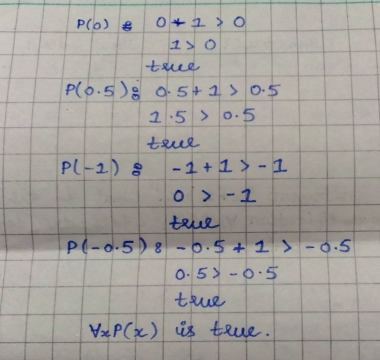 P(0) : 0 + 1 > 0
1 > 0
true
P(0.5) : 0.5 + 1 > 0.5
1.5 > 0.5
true
P(-1) : -1 + 1 > -1
0 > -1
true
P(-0.5) : -0.5 + 1 > -0.5
0.5 > -0.5
true
∀xP(x) is true.